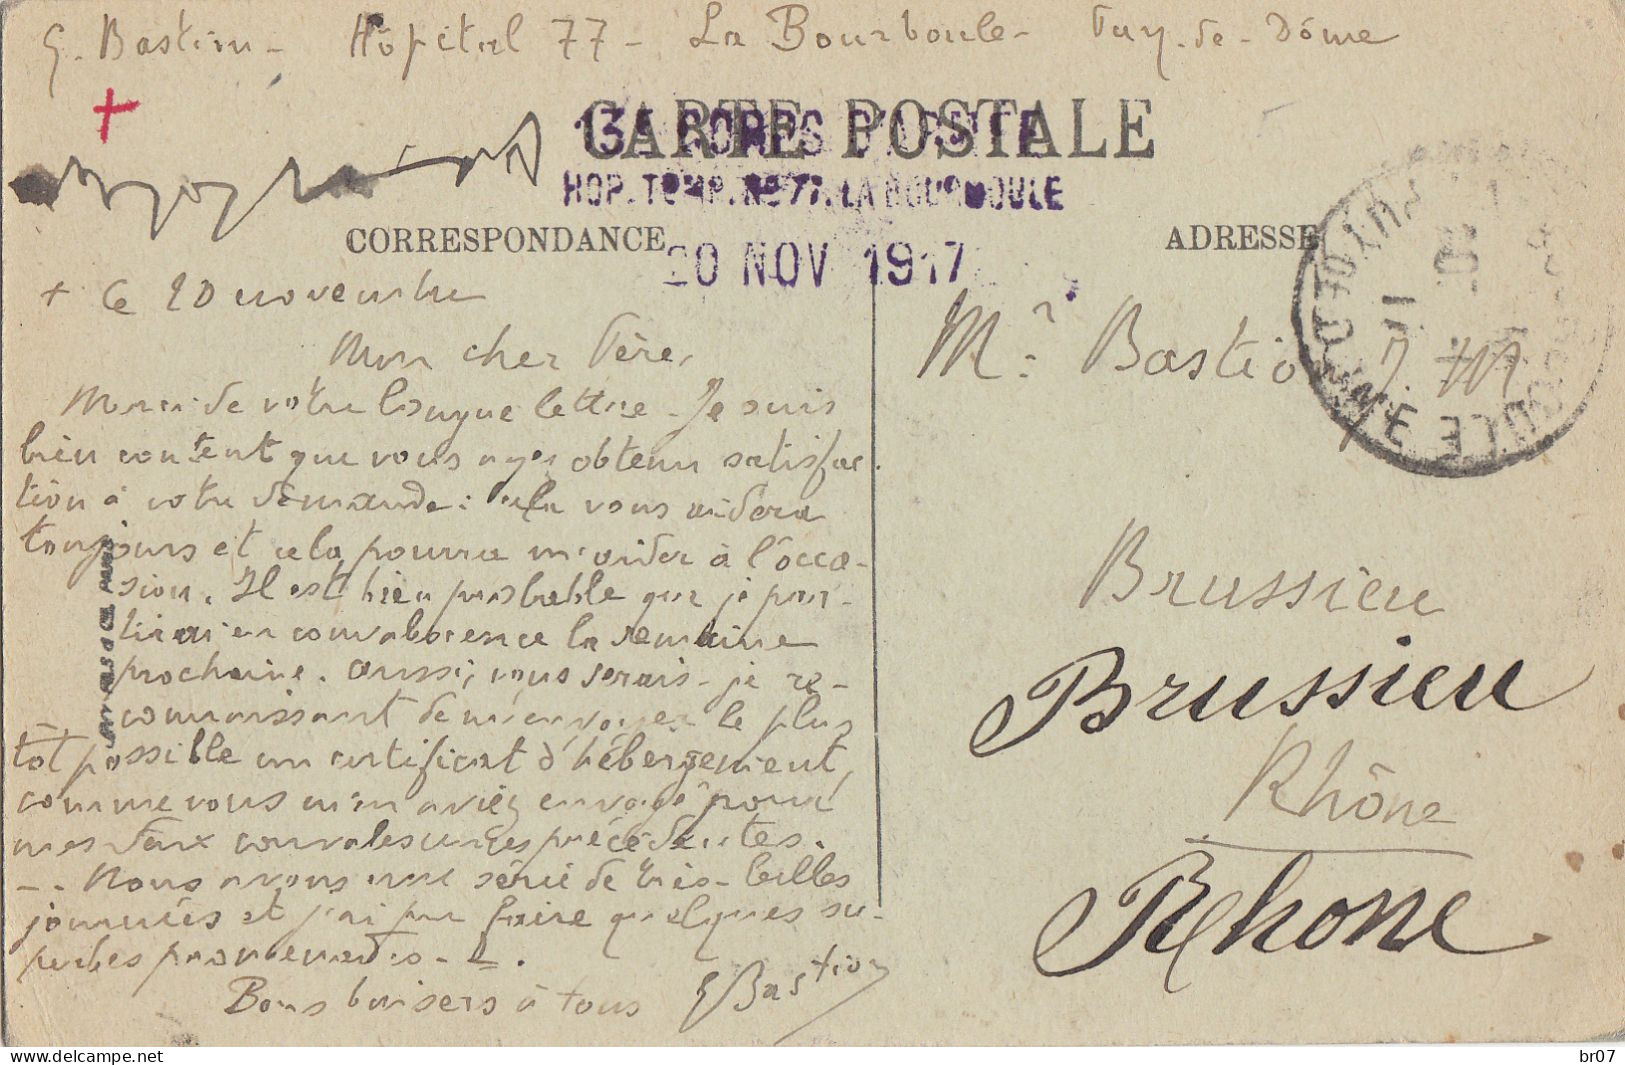 G. Bastion - Hôpital 77 - La Bourboule - Puy-de-Dôme
CARTE POSTALE
13E CORPS D'ARMÉE
HOP. TEMP. No 77. LA BOURBOULE
CORRESPONDANCE
20 NOV 1917
ADRESSE
PUY DE DOME
+ Ce 20 novembre
Mon cher Père,
Merci de votre longue lettre. Je suis
bien content que vous ayez obtenu satisfac-
tion à votre demande : cela vous aidera
toujours et cela pourra m'aider à l'occa-
sion. Il est bien probable que je par-
tirai en convalescence la semaine
prochaine. Aussi, vous serais-je re-
connaissant de m'envoyer le plus
tôt possible un certificat d'hébergement,
comme vous m'en aviez envoyé pour
mes deux convalescences précédentes.
-. Nous avons une série de très-belles
journées et j'ai pu faire quelques su-
perbes promenades -.
Bons baisers à tous
G Bastion
Mr Bastion J. M
Brussieu
Brussieu
Rhône
Rhone
delcampe.net
br07